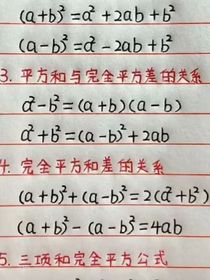 (a+b)²=a²+2ab+b²
(a-b)²=a²-2ab+b²
3.平方和与完全平方差的关系
a²-b²=(a+b)(a-b)
a²+b²=(a-b)²+2ab
4.完全平方和差的关系
(a+b)²+(a-b)²=2(a²+b²)
(a+b)²-(a-b)²=4ab
5.三项和完全平方公式